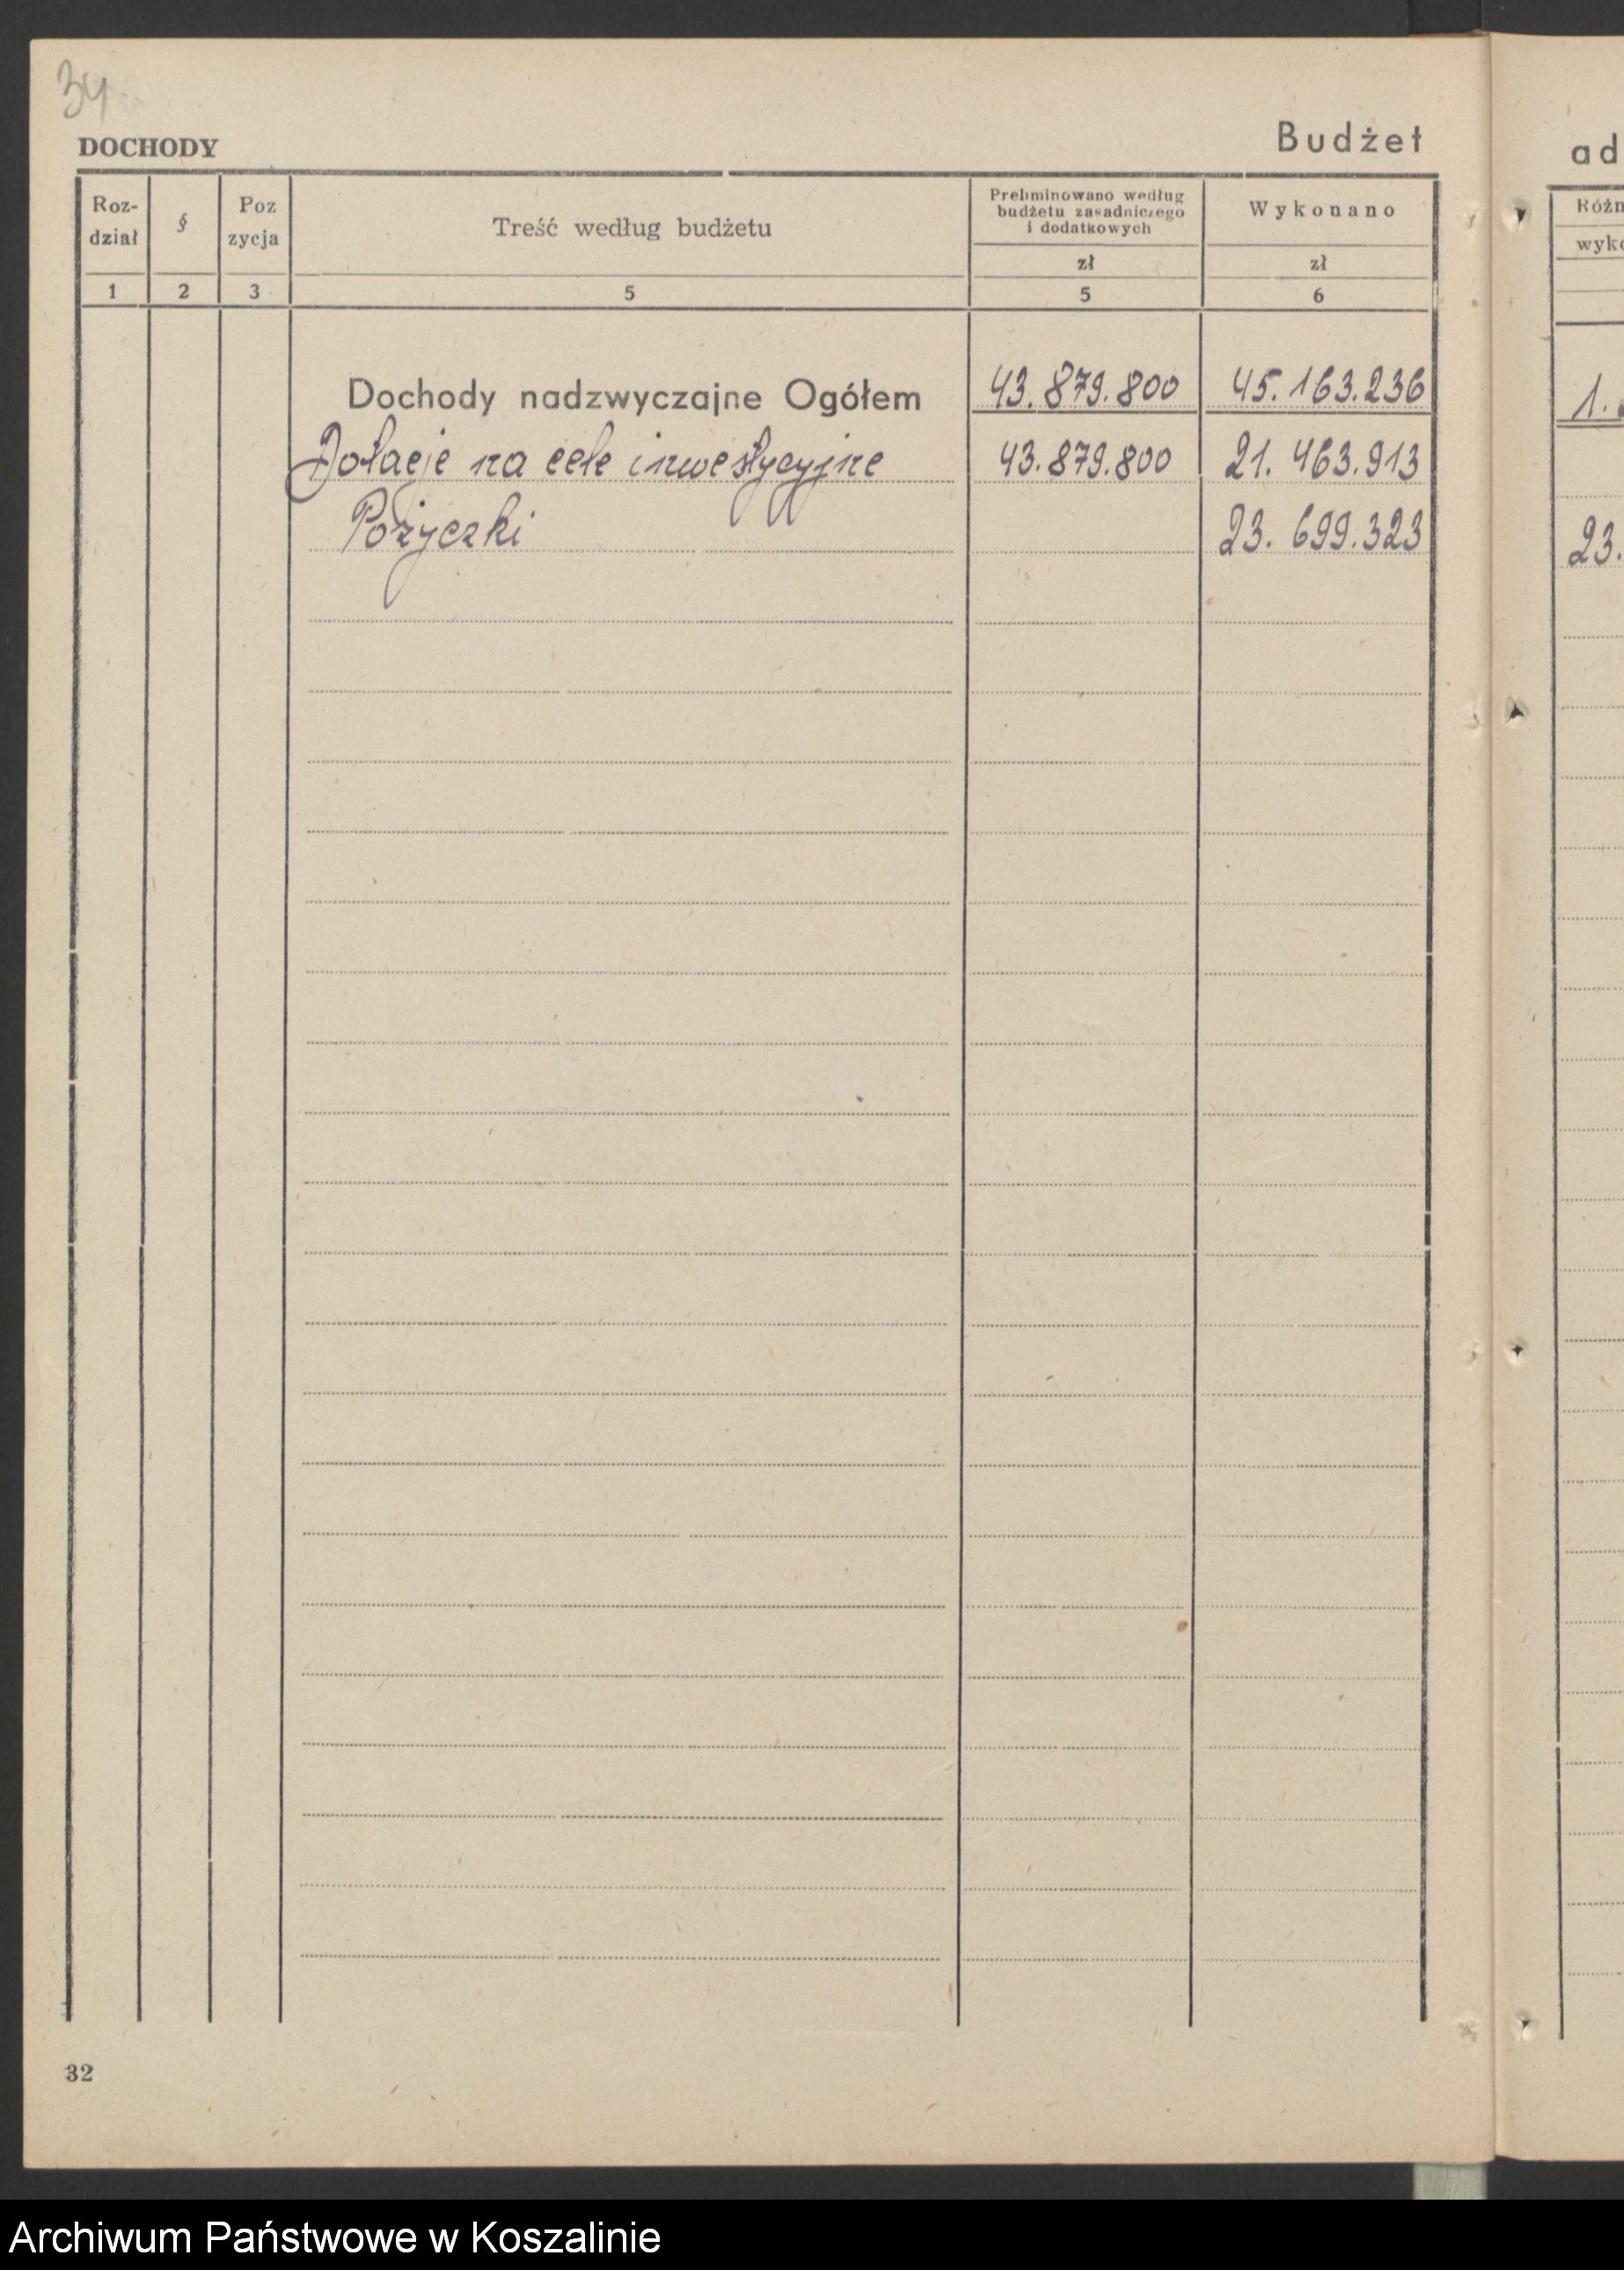 34
DOCHODY
Budżet
Roz-
dział
§
Poz
zycja
Treść według budżetu
Preliminowano według
budżetu zasadniczego
i dodatkowych
Wykonano
zł
zł
1 2 3 5 5 6
Dochody nadzwyczajne Ogółem 43.879.800 45.163.236
Dotacje na cele inwestycyjne 43.879.800 21.463.913
Pożyczki 23.699.323
32
ad
Różn
wyko
1.
23.
Archiwum Państwowe w Koszalinie